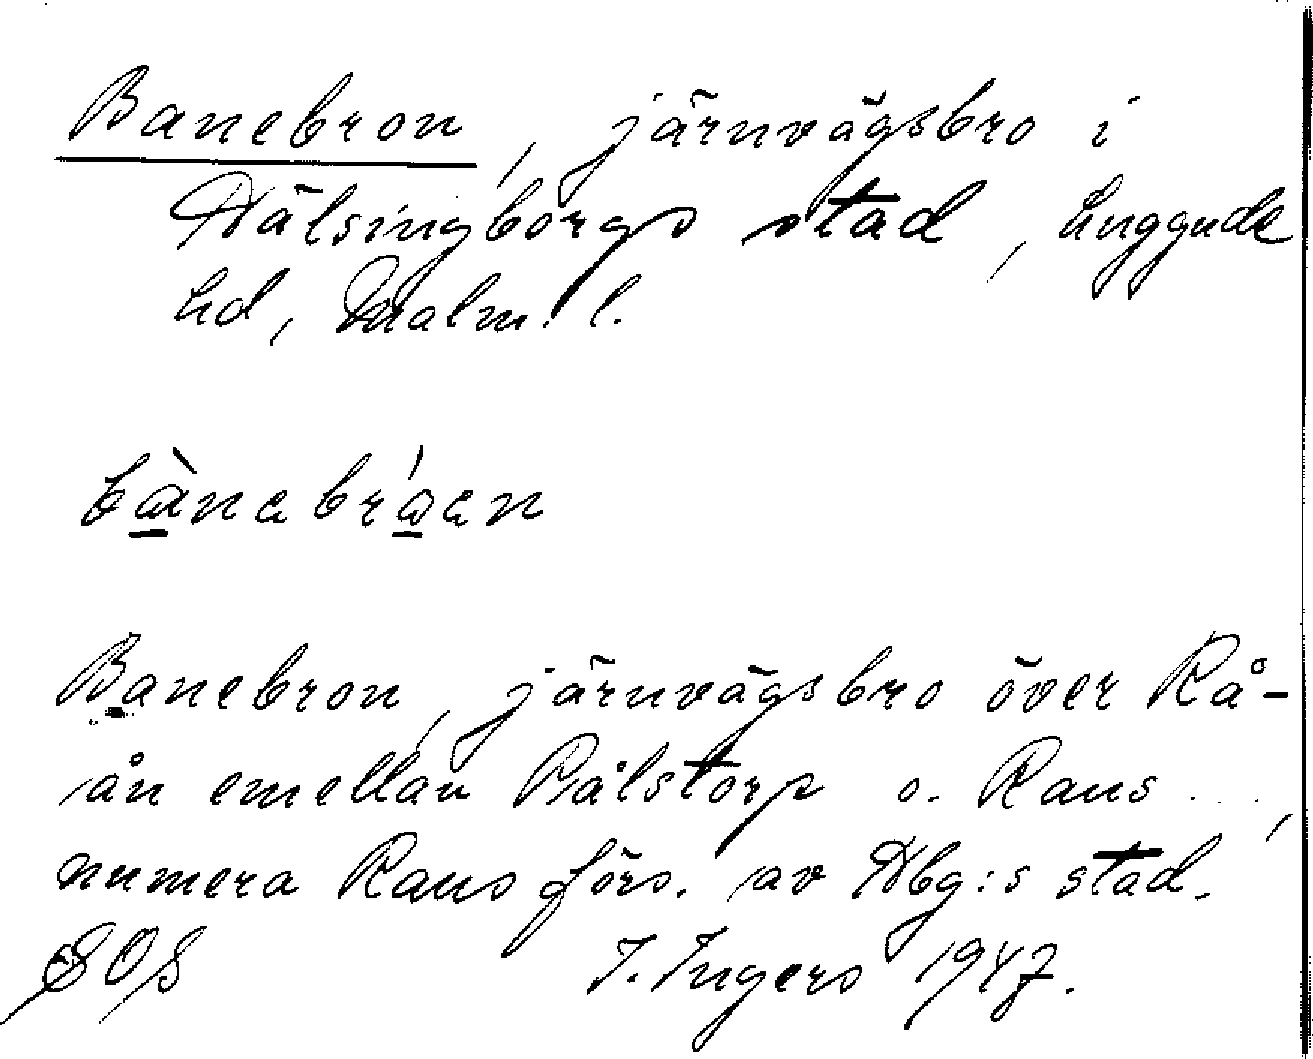 Banebron, järnvägsbro i
Hälsingborgs stad, Luggude
hd, Malm. l.
bànebróen
Banebron, järnvägsbro över Rå-
ån emellan Pålstorp o. Raus ...,
numera Raus förs. av Hbg:s stad.
SOS I. Ingers 1947.